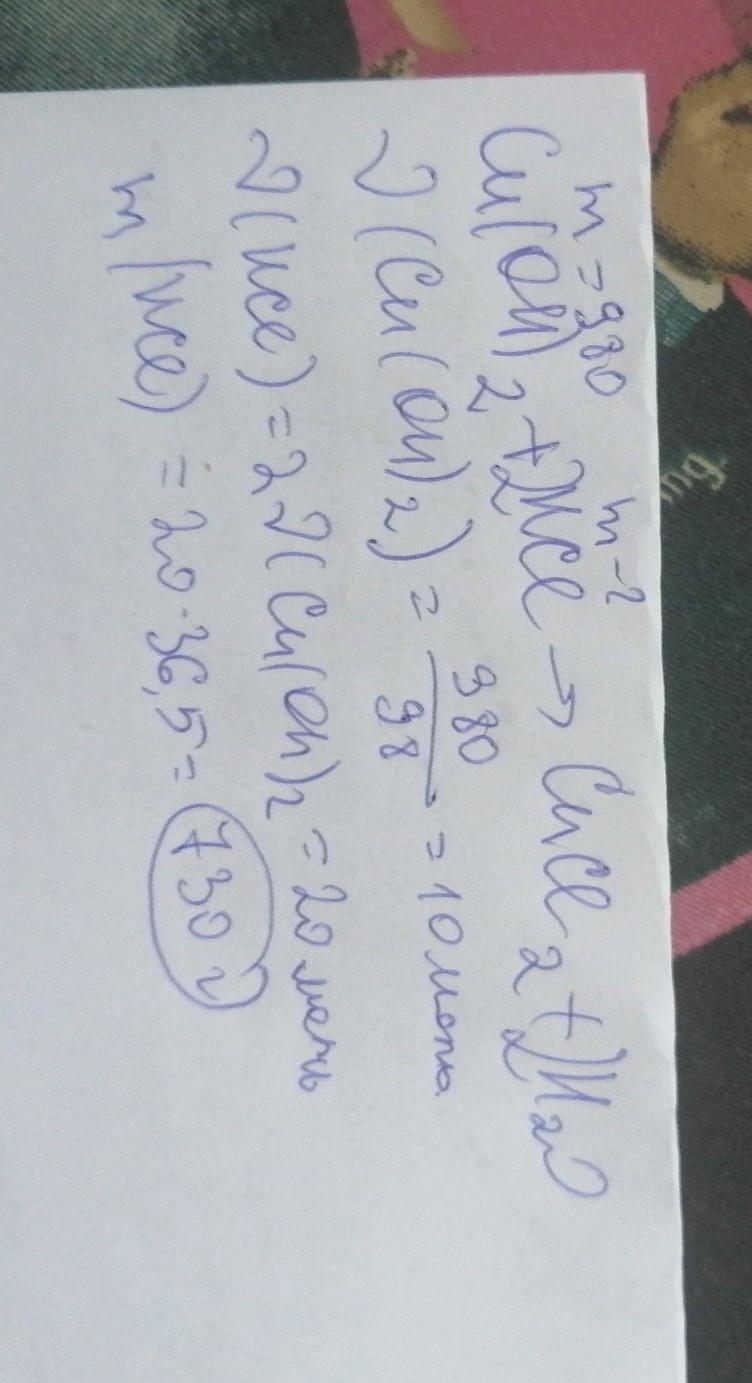 m = 980    m - ?
Cu(OH)2 + 2HCl → CuCl2 + 2H2O
ν(Cu(OH)2) = 980/98 = 10 моль
ν(HCl) = 2ν(Cu(OH)2 = 20 моль
m(HCl) = 20·36,5 = 730 г
mg.